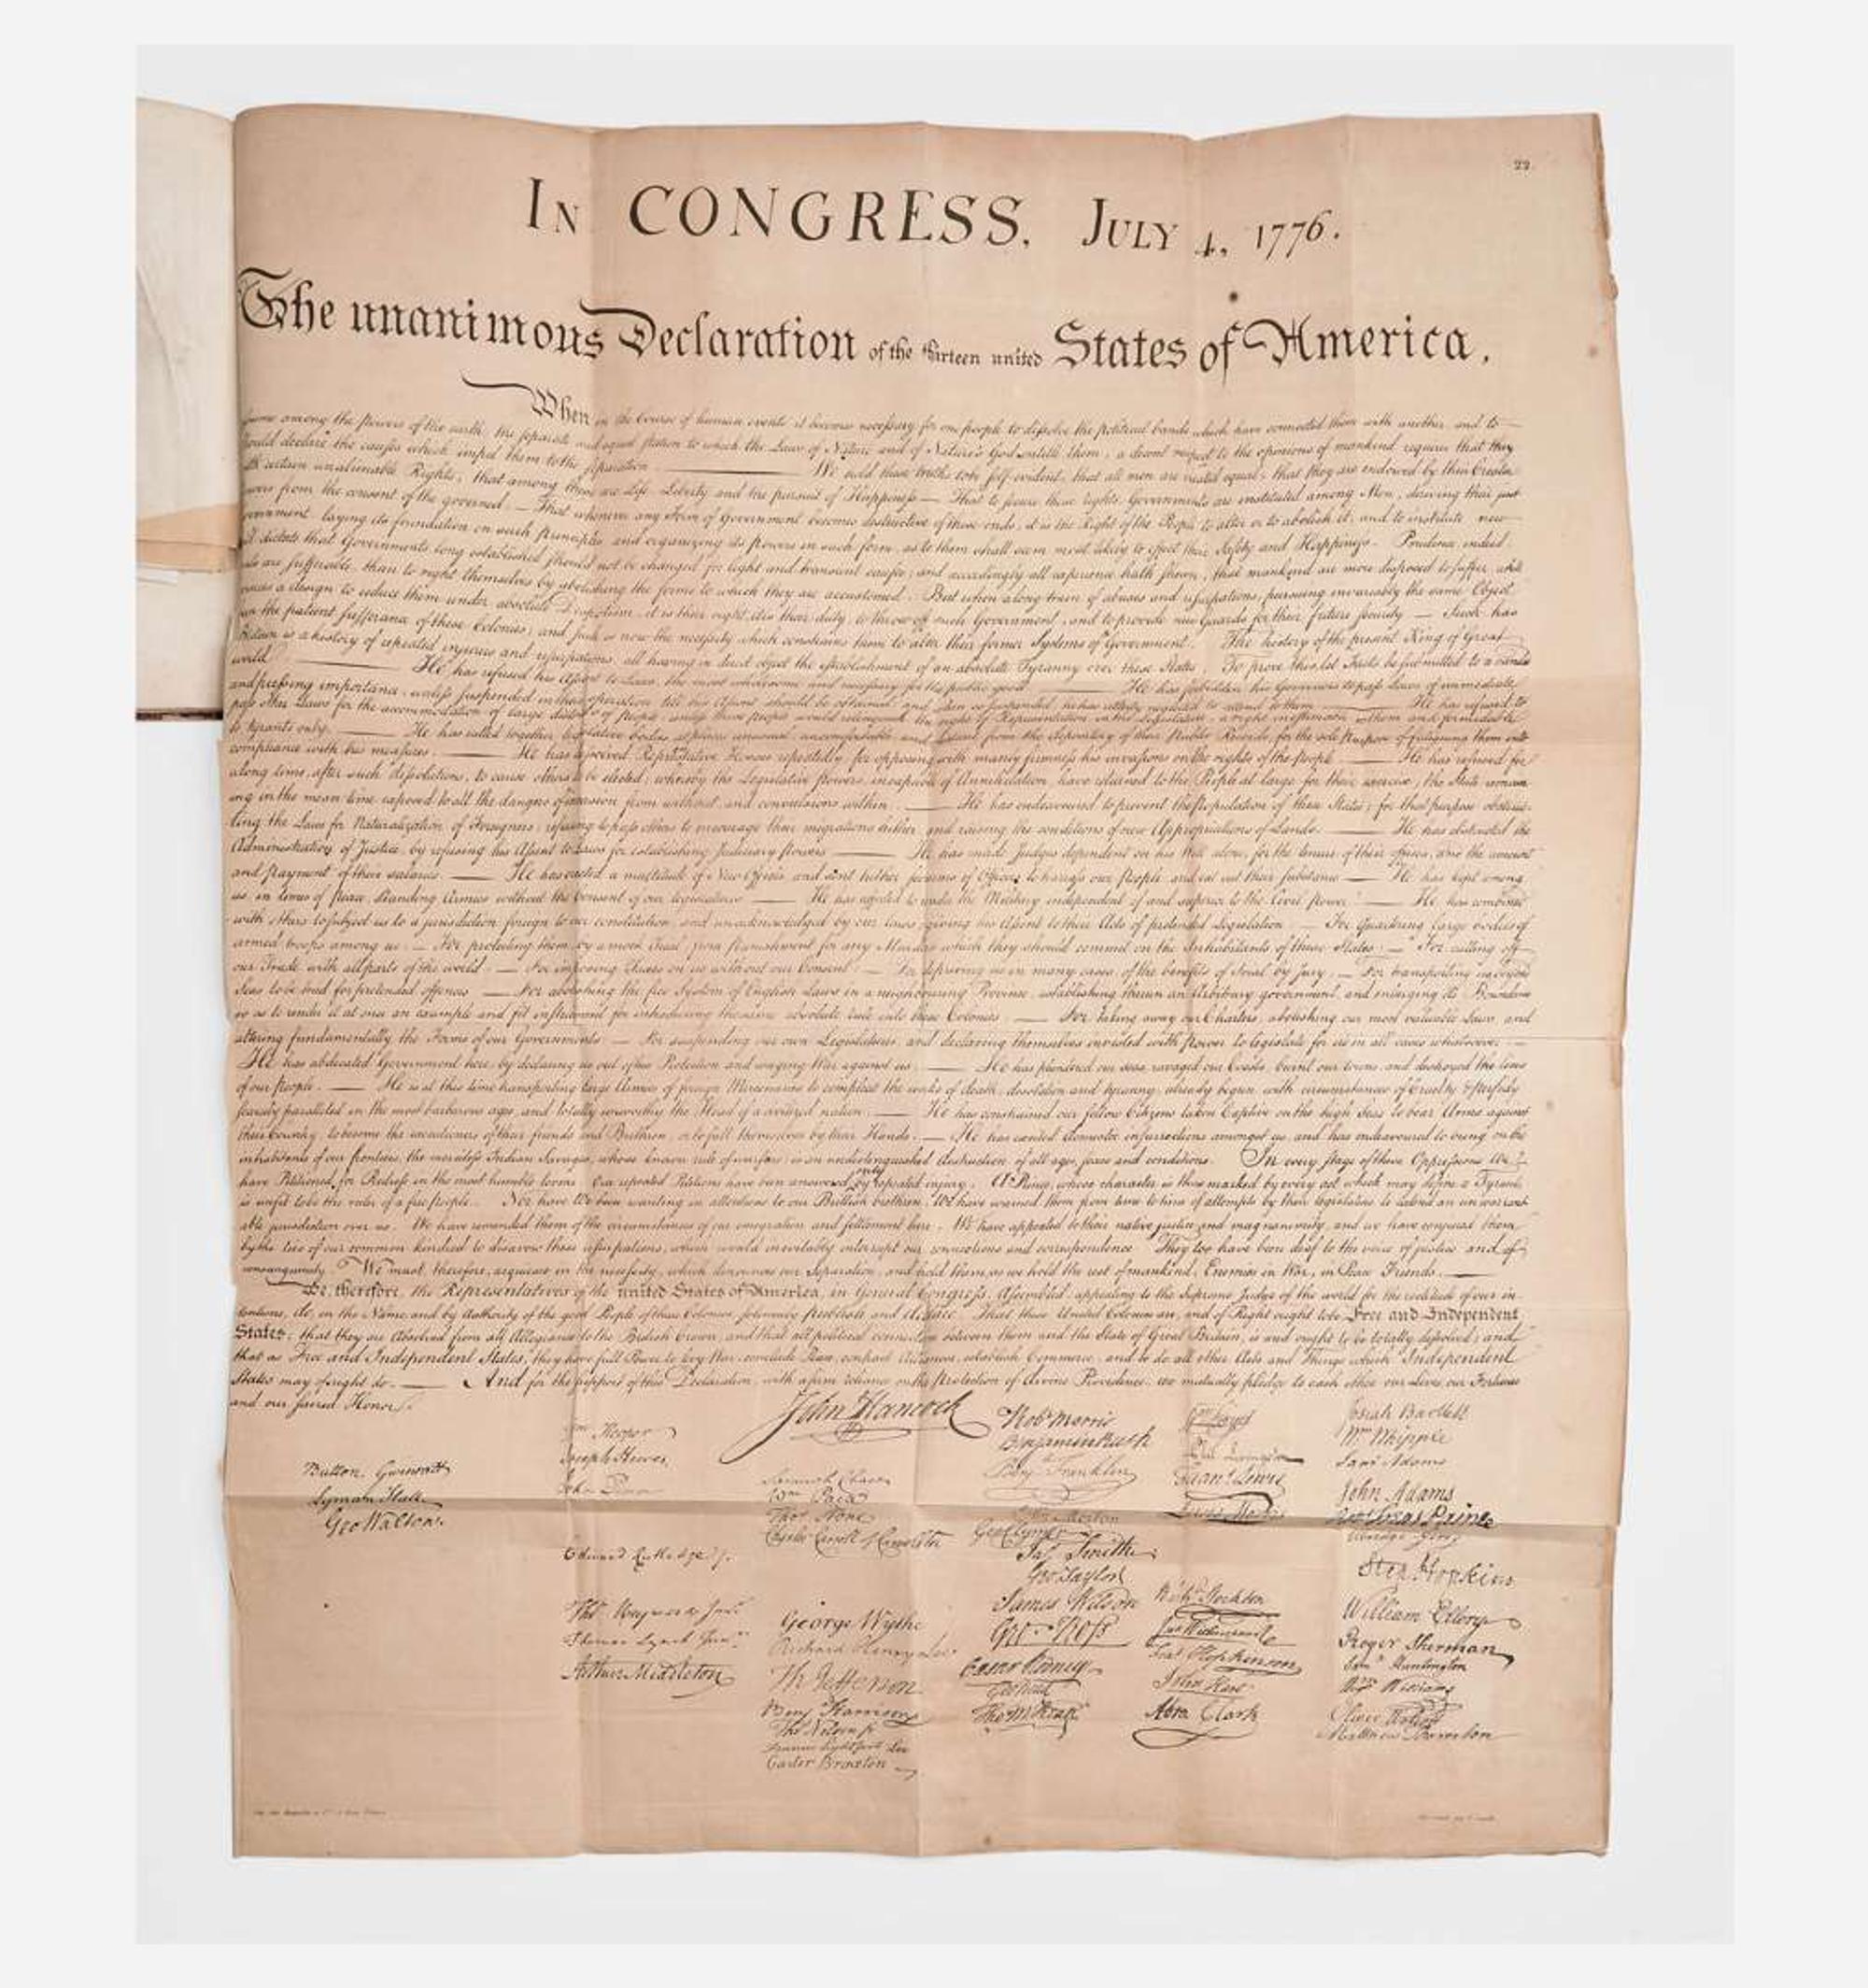 22.
IN CONGRESS, JULY 4, 1776.
The unanimous Declaration of the thirteen united States of America,
When in the Course of human events it becomes necessary for one people to dissolve the political bands which have connected them with another, and to
among the powers of the earth, the separate and equal station to which the Laws of Nature and of Nature's God entitle them, a decent respect to the opinions of mankind requires that they
should declare the causes which impel them to the separation. We hold these truths to be self-evident, that all men are created equal, that they are endowed by their Creator
with certain unalienable Rights, that among these are Life, Liberty and the pursuit of Happiness — That to secure these rights, Governments are instituted among Men, deriving their just
powers from the consent of the governed, — That whenever any Form of Government becomes destructive of these ends, it is the Right of the People to alter or to abolish it, and to institute new
Government, laying its foundation on such principles and organizing its powers in such form, as to them shall seem most likely to effect their Safety and Happiness. Prudence, indeed,
will dictate that Governments long established should not be changed for light and transient causes; and accordingly all experience hath shewn, that mankind are more disposed to suffer, while
evils are sufferable, than to right themselves by abolishing the forms to which they are accustomed. But when a long train of abuses and usurpations, pursuing invariably the same Object
evinces a design to reduce them under absolute Despotism, it is their right, it is their duty, to throw off such Government, and to provide new Guards for their future security. — Such has
been the patient sufferance of these Colonies; and such is now the necessity which constrains them to alter their former Systems of Government. The history of the present King of Great
Britain is a history of repeated injuries and usurpations, all having in direct object the establishment of an absolute Tyranny over these States. To prove this, let Facts be submitted to a candid
world. He has refused his Assent to Laws, the most wholesome and necessary for the public good. He has forbidden his Governors to pass Laws of immediate
and pressing importance, unless suspended in their operation till his Assent should be obtained; and when so suspended, he has utterly neglected to attend to them. He has refused to
pass other Laws for the accommodation of large districts of people, unless those people would relinquish the right of Representation in the Legislature, a right inestimable to them and formidable
to tyrants only. He has called together legislative bodies at places unusual, uncomfortable, and distant from the depository of their Public Records, for the sole purpose of fatiguing them into
compliance with his measures. He has dissolved Representative Houses repeatedly, for opposing with manly firmness his invasions on the rights of the people. He has refused for
a long time, after such dissolutions, to cause others to be elected; whereby the Legislative powers, incapable of Annihilation, have returned to the People at large for their exercise; the State remain
ing in the mean time exposed to all the dangers of invasion from without, and convulsions within. He has endeavoured to prevent the population of these States; for that purpose obstruc
ting the Laws for Naturalization of Foreigners; refusing to pass others to encourage their migrations hither, and raising the conditions of new Appropriations of Lands. He has obstructed the
Administration of Justice, by refusing his Assent to Laws for establishing Judiciary powers. He has made Judges dependent on his Will alone, for the tenure of their offices, and the amount
and payment of their salaries. He has erected a multitude of New Offices, and sent hither swarms of Officers to harrass our people, and eat out their substance. He has kept among
us, in times of peace, Standing Armies without the Consent of our legislatures. He has affected to render the Military independent of and superior to the Civil power. He has combined
with others to subject us to a jurisdiction foreign to our constitution, and unacknowledged by our laws; giving his Assent to their Acts of pretended Legislation: — For Quartering large bodies of
armed troops among us: — For protecting them, by a mock Trial, from punishment for any Murders which they should commit on the Inhabitants of these States: — For cutting off
our Trade with all parts of the world: — For imposing Taxes on us without our Consent: — For depriving us in many cases, of the benefits of Trial by Jury: — For transporting us beyond
Seas to be tried for pretended offences — For abolishing the free System of English Laws in a neighbouring Province, establishing therein an Arbitrary government, and enlarging its Boundaries
so as to render it at once an example and fit instrument for introducing the same absolute rule into these Colonies: — For taking away our Charters, abolishing our most valuable Laws, and
altering fundamentally the Forms of our Governments: — For suspending our own Legislatures, and declaring themselves invested with power to legislate for us in all cases whatsoever. —
He has abdicated Government here, by declaring us out of his Protection and waging War against us. He has plundered our seas, ravaged our Coasts, burnt our towns, and destroyed the lives
of our people. He is at this time transporting large Armies of foreign Mercenaries to compleat the works of death, desolation and tyranny, already begun with circumstances of Cruelty & perfidy
scarcely paralleled in the most barbarous ages, and totally unworthy the Head of a civilized nation. He has constrained our fellow Citizens taken Captive on the high Seas to bear Arms against
their Country, to become the executioners of their friends and Brethren, or to fall themselves by their Hands. He has excited domestic insurrections amongst us, and has endeavoured to bring on the
inhabitants of our frontiers, the merciless Indian Savages, whose known rule of warfare, is an undistinguished destruction of all ages, sexes and conditions. In every stage of these Oppressions We
have Petitioned for Redress in the most humble terms: Our repeated Petitions have been answered only by repeated injury. A Prince, whose character is thus marked by every act which may define a Tyrant,
is unfit to be the ruler of a free people. Nor have We been wanting in attentions to our Brittish brethren. We have warned them from time to time of attempts by their legislature to extend an unwarrant
able jurisdiction over us. We have reminded them of the circumstances of our emigration and settlement here. We have appealed to their native justice and magnanimity, and we have conjured them
by the ties of our common kindred to disavow these usurpations, which would inevitably interrupt our connections and correspondence. They too have been deaf to the voice of justice and of
consanguinity. We must, therefore, acquiesce in the necessity, which denounces our Separation, and hold them, as we hold the rest of mankind, Enemies in War, in Peace Friends.
We, therefore, the Representatives of the united States of America, in General Congress, Assembled, appealing to the Supreme Judge of the world for the rectitude of our in
tentions, do, in the Name, and by Authority of the good People of these Colonies, solemnly publish and declare, That these United Colonies are, and of Right ought to be Free and Independent
States; that they are Absolved from all Allegiance to the British Crown, and that all political connection between them and the State of Great Britain, is and ought to be totally dissolved; and
that as Free and Independent States, they have full Power to levy War, conclude Peace, contract Alliances, establish Commerce, and to do all other Acts and Things which Independent
States may of right do. And for the support of this Declaration, with a firm reliance on the protection of divine Providence, we mutually pledge to each other our Lives, our Fortunes
and our sacred Honor.
Button Gwinnett
Lyman Hall
Geo Walton.
Wm Hooper
Joseph Hewes,
John Penn
Edward Rutledge
Thos Heyward Junr
Thomas Lynch Junr
Arthur Middleton
John Hancock
Samuel Chase
Wm Paca
Thos Stone
Charles Carroll of Carrollton
George Wythe
Richard Henry Lee
Th Jefferson
Benj Harrison
Thos Nelson jr
Francis Lightfoot Lee
Carter Braxton
Robt Morris
Benjamin Rush
Benj Franklin
Morton
Geo Clymer
Jas Smith
Geo Taylor
James Wilson
Geo Ross
Caesar Rodney
Geo Read
Tho M:Kean
Wm Floyd
Phil Livingston
Frans Lewis
Lewis Morris
Richd Stockton
Jno Witherspoon
Fras Hopkinson
John Hart
Abra Clark
Josiah Bartlett
Wm Whipple
Saml Adams
John Adams
Robt Treat Paine
Elbridge Gerry
Step Hopkins
William Ellery
Roger Sherman
Saml Huntington
Wm Williams
Oliver Wolcott
Matthew Thornton